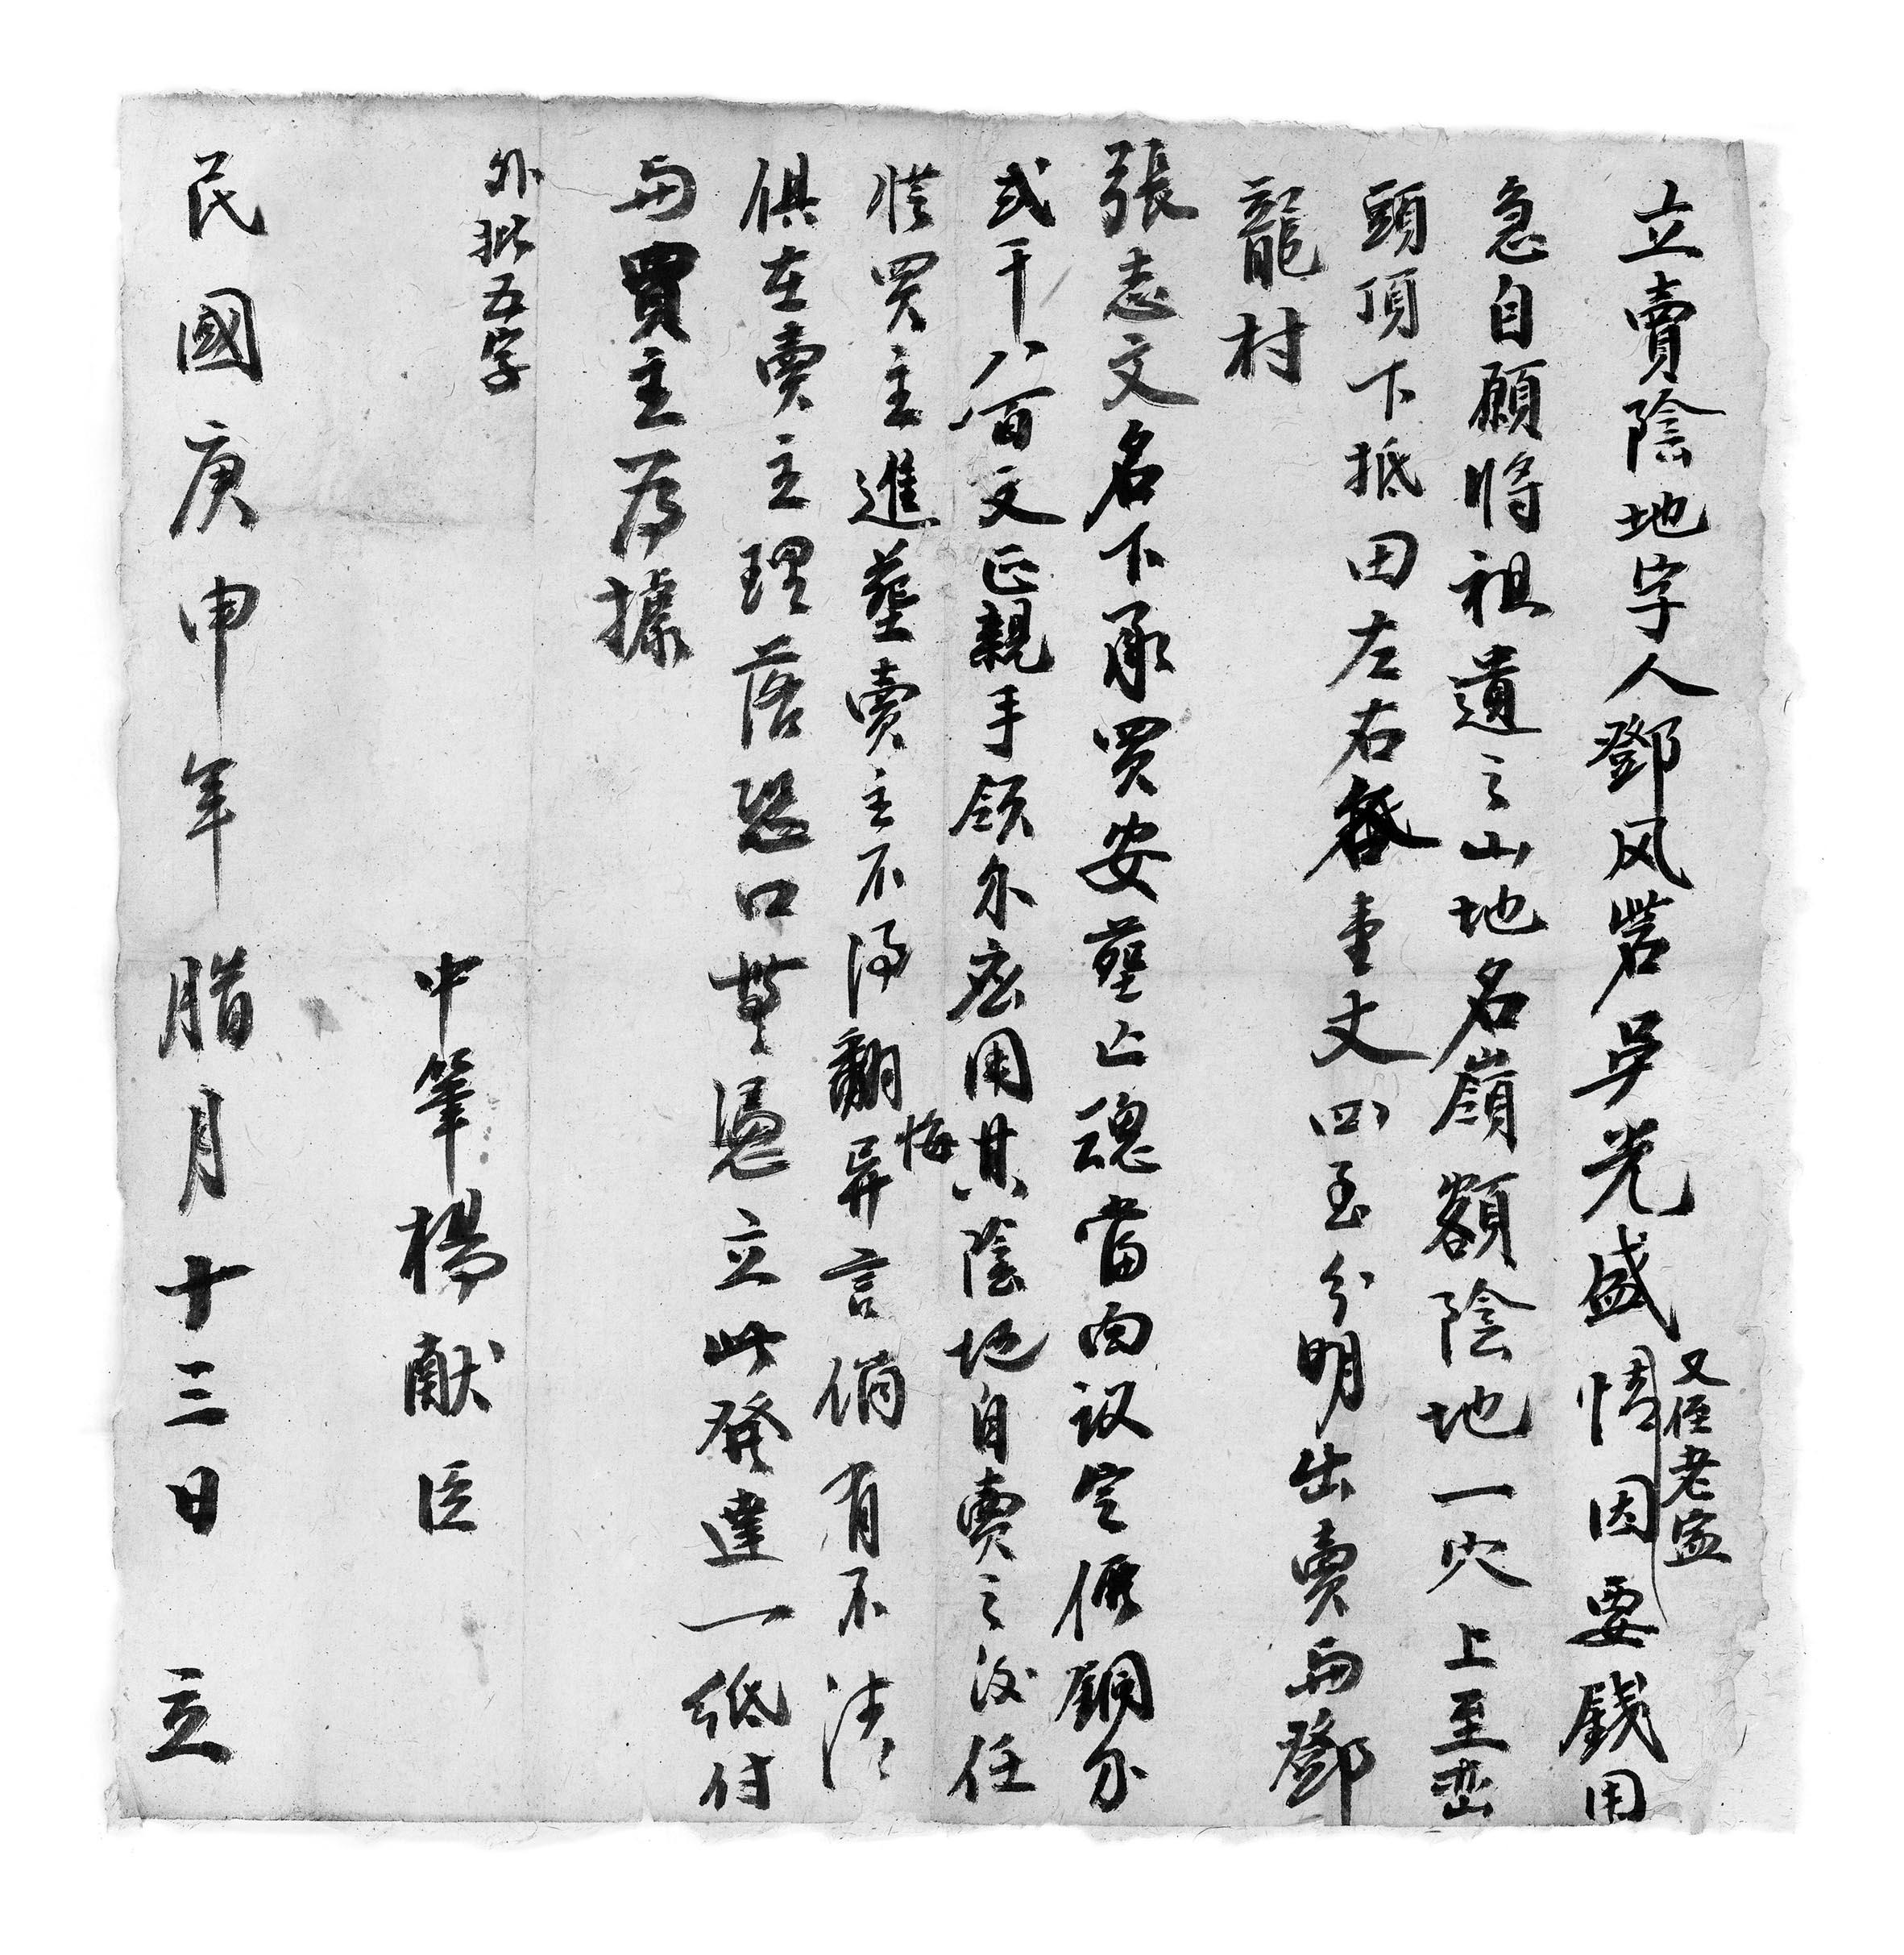 立賣陰地字人鄧风岩吴光盛情因要錢用
又侄老富
急自願將祖遺之山地名嶺額陰地一穴上至巒
頭頂下抵田左右各壹丈四至分明出賣与鄧
龍村
張志文名下承買安葬亡魂當面议定價銅分
弍千八百文正親手領尔應用其陰地自賣之後任
悔
從買主進葬賣主不得翻异言倘有不清
俱在賣主理落恐口無憑立此發達一纸付
与買主为據
外批五字
中筆楊献臣
民國庚申年腊月十三日立